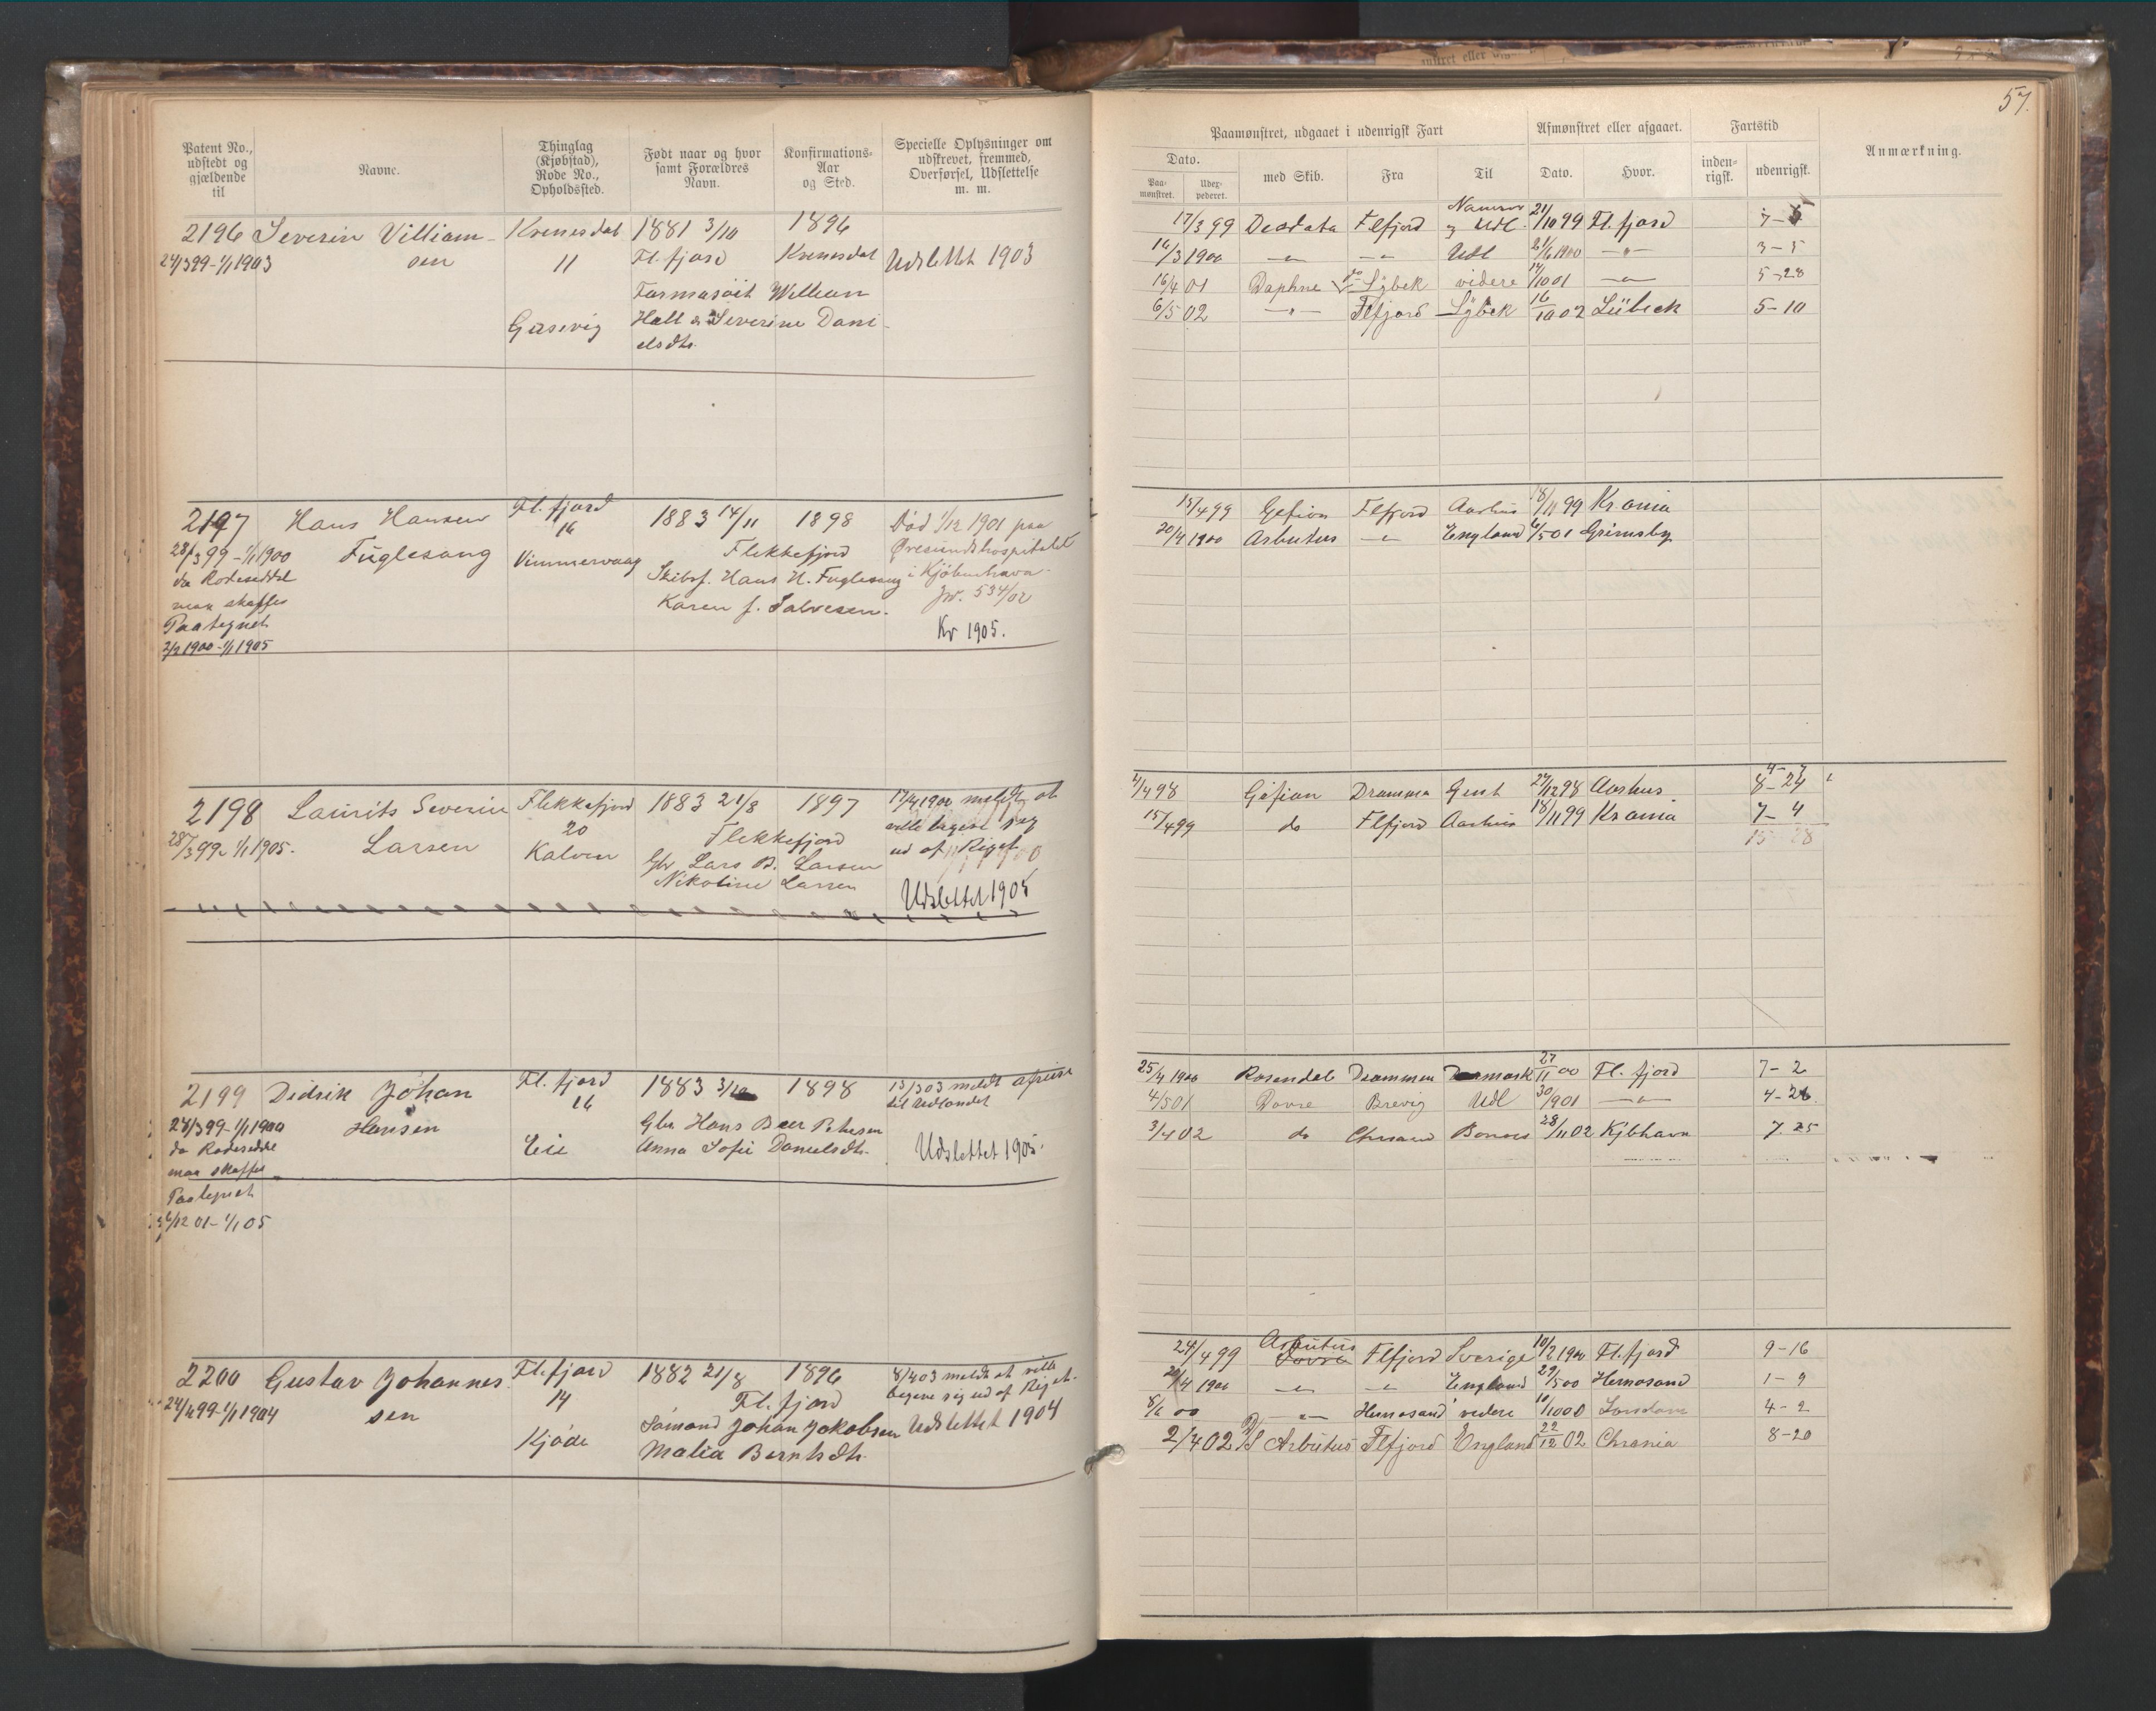 57.
Patent No., udstedt og gjældende til
Navne.
Thinglag (Kjøbstad), Rode No., Opholdssted.
Født naar og hvor samt Forældres Navn.
Konfirmations-Aar og Sted.
Specielle Oplysninger om udskrevet, fremmed, Overførsel, Udslettelse m. m.
Paamønstret, udgaaet i udenrigsk Fart
Afmønstret eller afgaaet.
Fartstid
Anmærkning.
Dato.
Paa-mønstret.
Udex-pederet.
med Skib.
Fra
Til
Dato.
Hvor.
inden-rigsk.
udenrigsk.
2196 Severin Villiam- Kvinesdal 1881 3/10 1896
24/3 99-1/1 1903 sen 11 Fl.fjord Kvinesdal Udslettet 1903
William
Gaasevig Hall & Severine Dani-
elsdtr.
17/3 99 Deodata Flfjord & Udl. 21/10 99 Fl.fjord
16/3 1900 -"- -"- Udl 21/6 1900 -"- 3-5
16/4 01 Daphne Lybek videre 14/10 01 -"- 5-28
6/5 02 -"- Flfjord Lybek 16/10 02 Lübeck 5-10
2197 Hans Hansen Fl.fjord 1883 14/11 1898 Död 1/12 1901 paa
28/3 99-1/1 1900 Fuglesang 16 Flekkefjord Øresundshospitalet
da Rodeseddel Vimmervaag Skibsf. Hans H. Fuglesang i Kjöbenhavn
maa skaffes Karen f. Salvesen. Jr. 534/02
Paategnet Kv 1905.
2/2 1900-1/1 1905
15/4 99 Gefion Flfjord Aarhus 18/11 99 Krania
20/4 1900 Arbutus -"- England 6/5 01 Grimsby
2198 Laurits Severin Flekkefjord 1883 21/8 1897 17/4 1900 meldt at
28/3 99-1/1 1905. Larsen 20 Flekkefjord ville begive sig
Kalven Gbr Lars B. Larsen ud af Riget
Nikoline Larsen
Udslettet 1905
4/4 98 Gefion Dramme Gent 27/12 98 Aarhus 8-24
15/4 99 do Flfjord Aarhus 18/11 99 Krania 7-4
15-28
2199 Didrik Johan Fl.fjord 1883 1898 13/3 03 meldt afreise
24/3 99-1/1 1900 Hansen 16 Gbr Hans Beer Petersen til Udlandet
da Rodeseddel Eie Anna Sofie Danielsdtr. Udslettet 1905.
maa skaffes
Paategnet
/12 01-1/1 05
25/4 1900 Rosendal Drammen Danmark 27/11 00 Fl.fjord 7-2
4/5 01 Dovre Brevig Udl 30/9 01 -"- 4-26
3/4 02 do Chrsand 28/11 02 Kjbhavn 7.25
2200 Gustav Johannes Fl.fjord 1882 21/8 1896 8/4 03 meldt at ville
24/4 99-1/1 1904 sen 14 Fl.fjord begive sig ud af Riget.
Kjöde Sömand Johan Jakobsen Udslettet 1904
Malia Berntsdtr.
24/4 99 Arbutus Flfjord Sverige 10/2 1900 Fl.fjord 9-16
20/4 1900 -"- -"- England 29/5 00 Hernosand 1-9
8/6 00 -"- Hernosand videre 10/10 00 4-2
2/4 02 Arbutus Flfjord England 22/12 02 Chrania 8-20